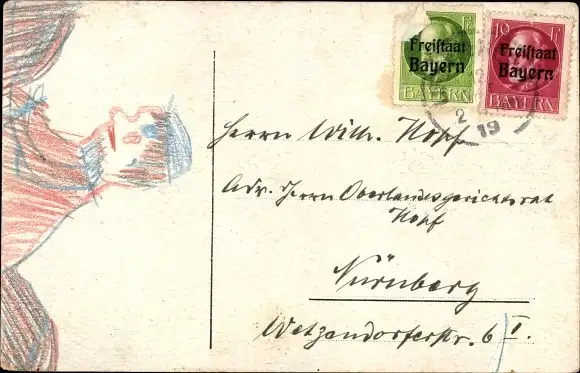 Pf.
Freistaat
Bayern
BAYERN
10 Pf.
Freistaat
Bayern
BAYERN
2
19
Herrn Wilh. Kopf
Adr. Herrn Oberlandesgerichtsrat
Kopf
Nürnberg
Wetzendorferstr. 6 I.